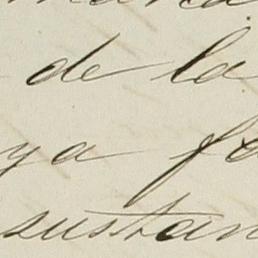 de la
ya fa
sustan